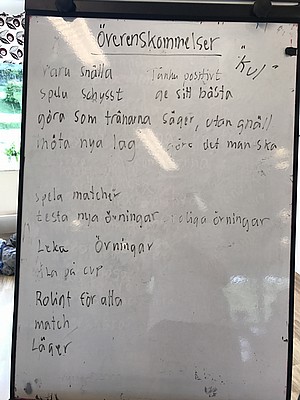 Överenskommelser
"Kul"
vara snälla tänka positivt
spela schysst ge sitt bästa
göra som tränarna säger, utan gnäll
möta nya lag göra det man ska
spela matcher
testa nya örningar roliga örningar
Leka örningar
åka på cup
Roligt för alla
match
Läger